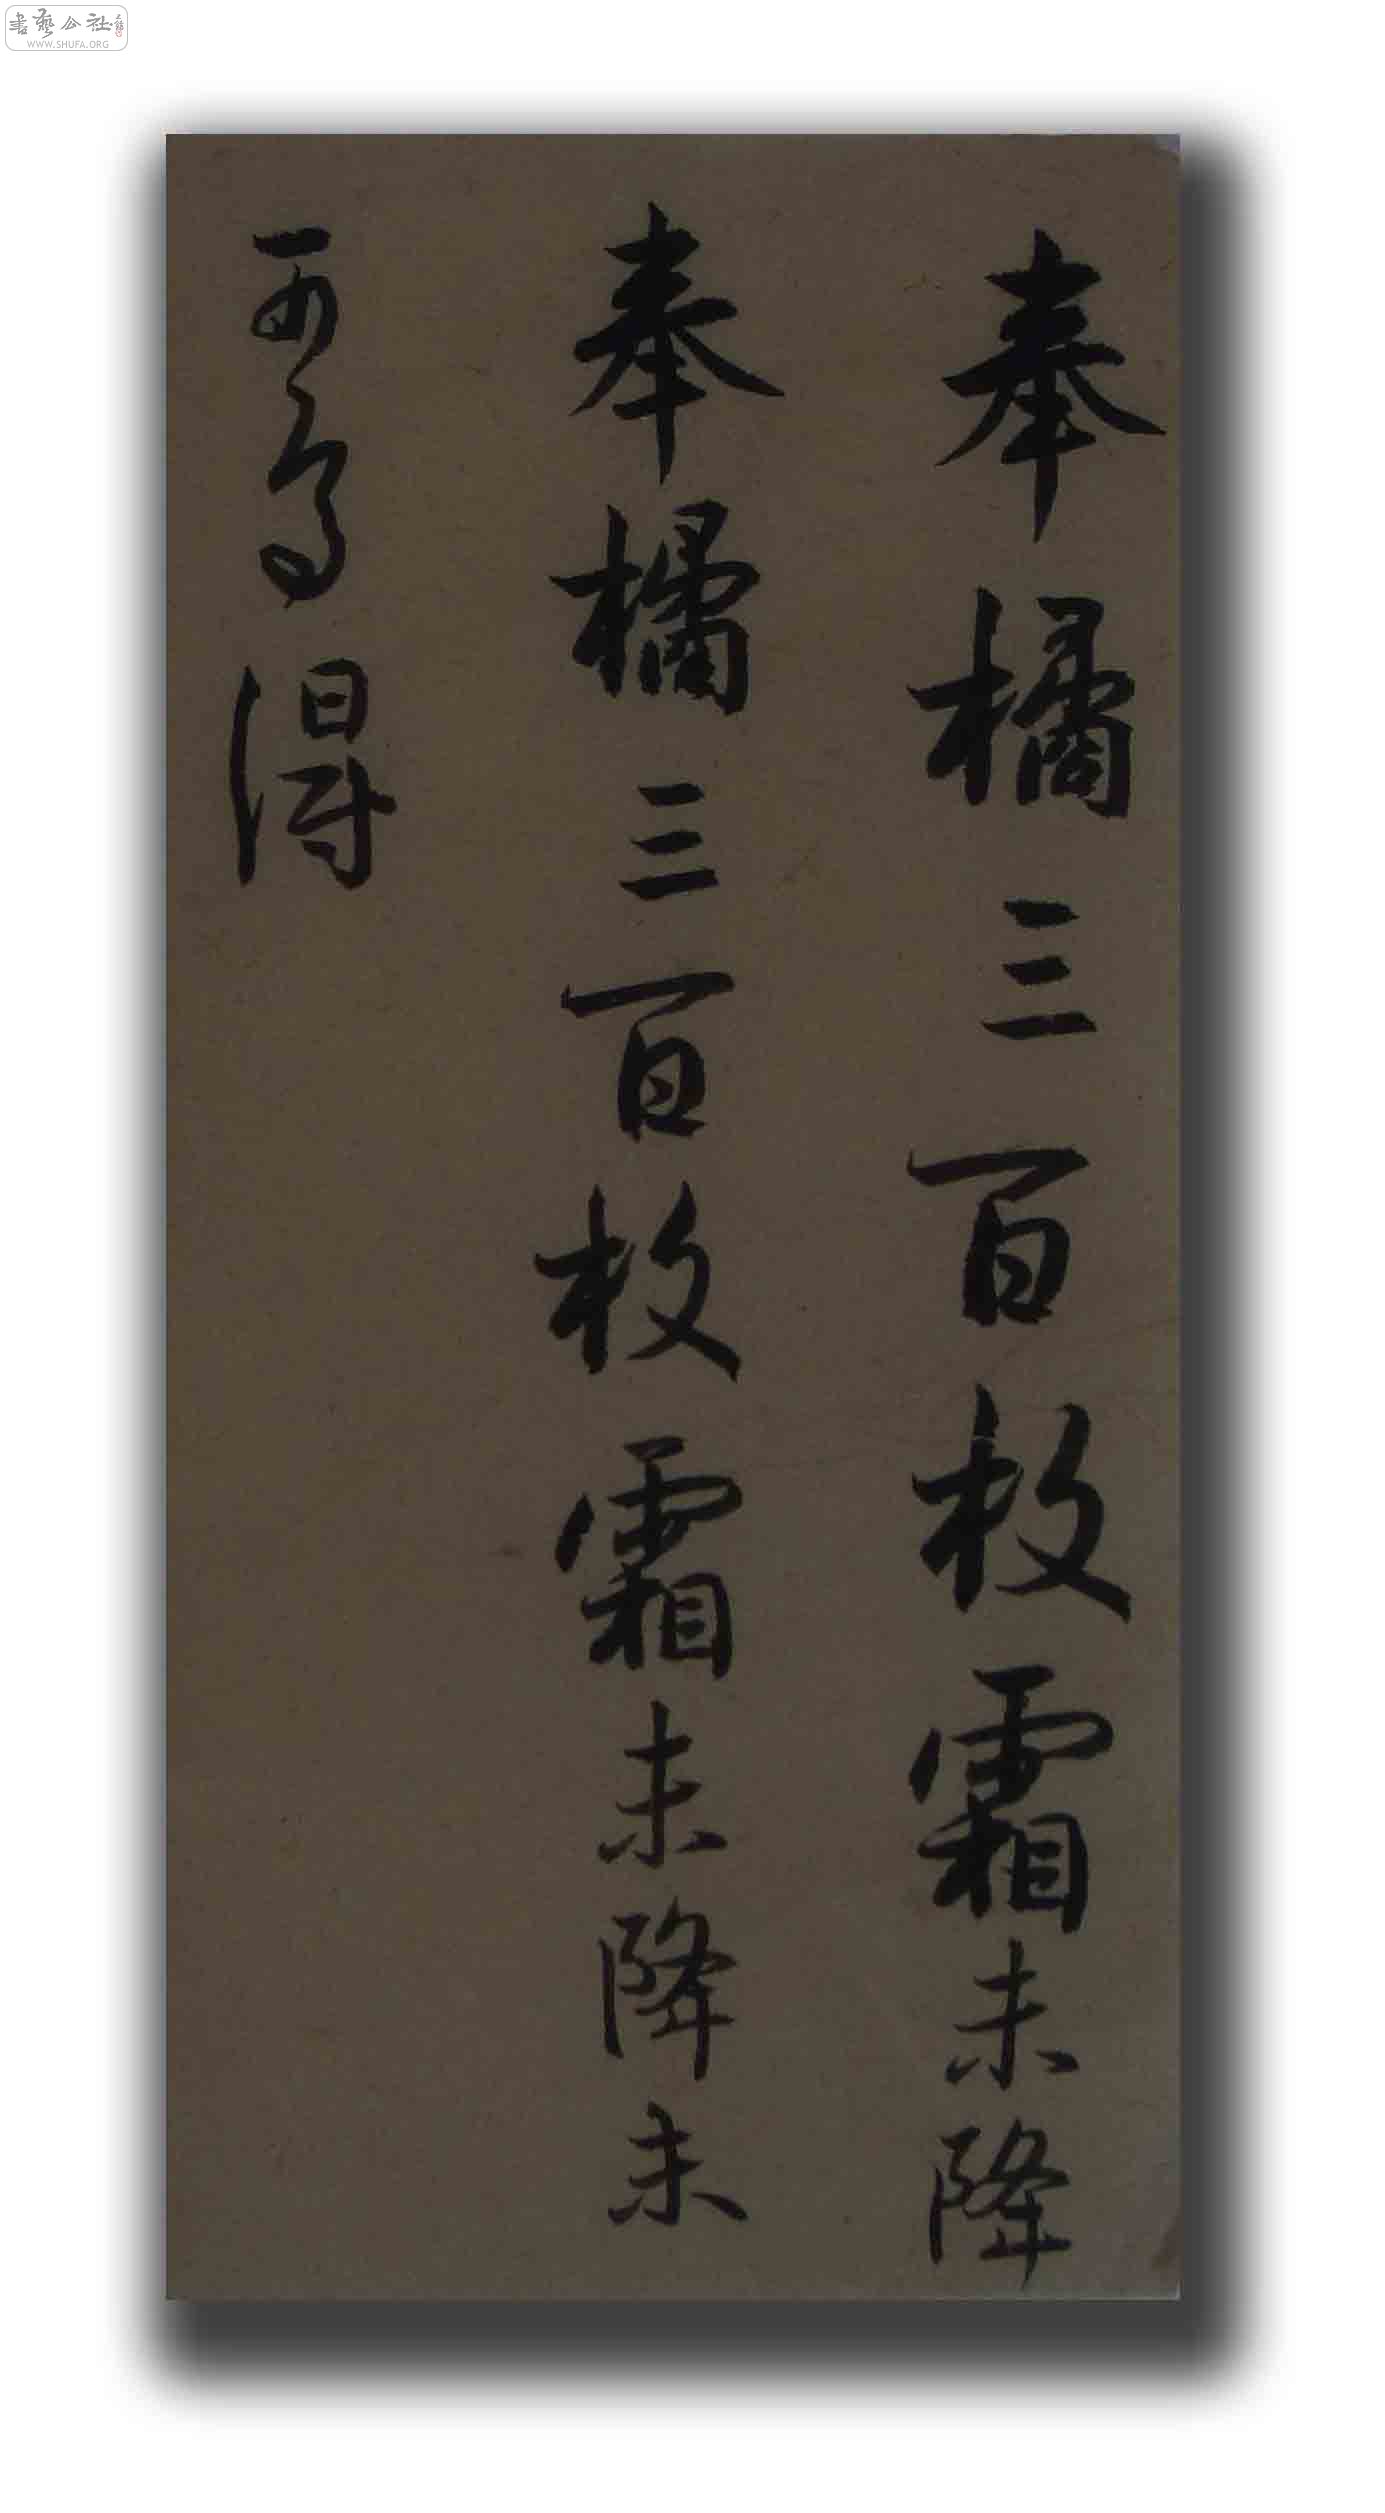 書藝公社
WWW.SHUFA.ORG
奉橘三百枚霜未降
奉橘三百枚霜未降未
可多得